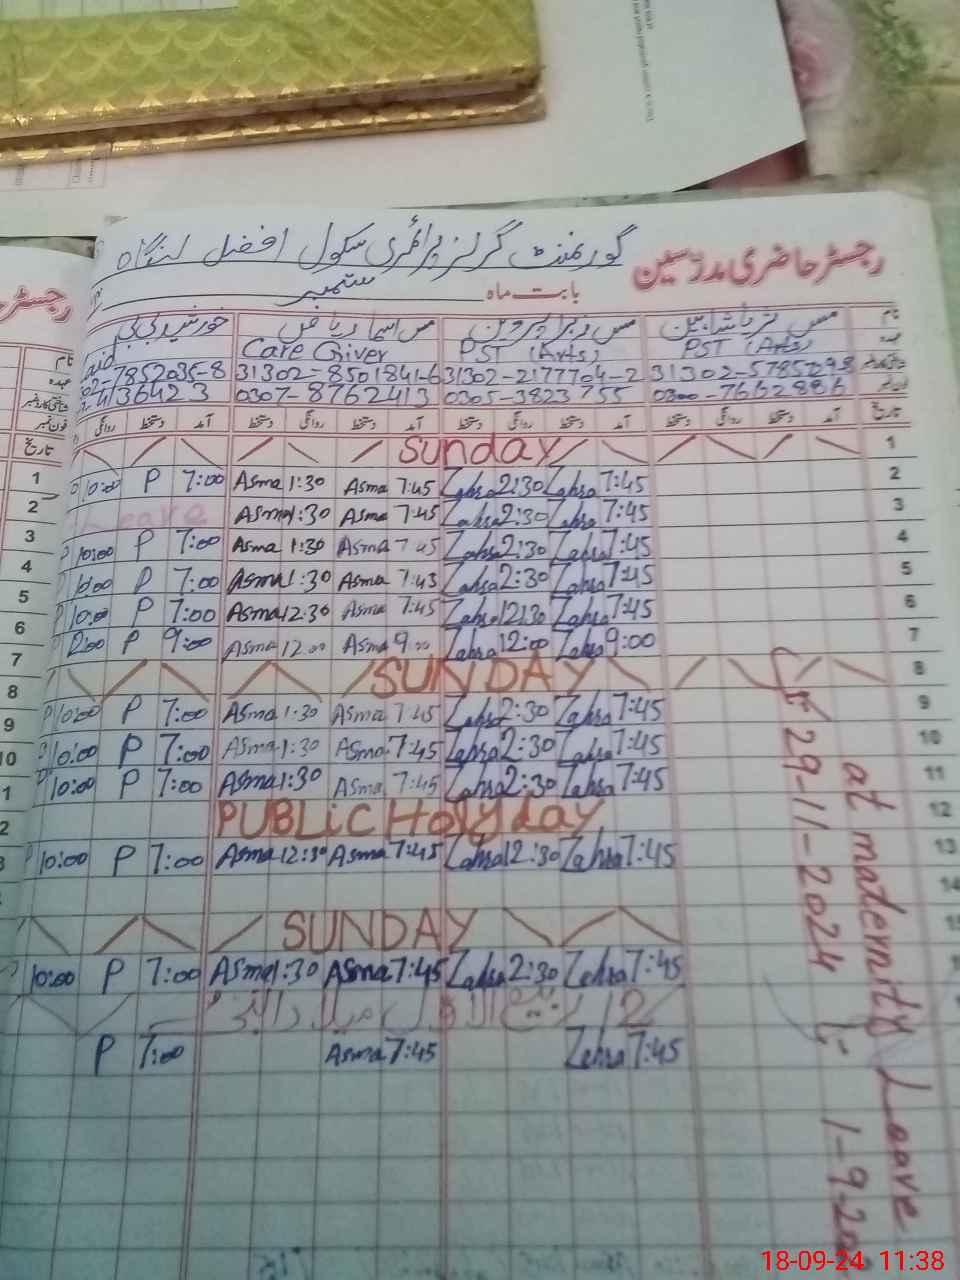 رجسٹر حاضری مدرسین گورنمنٹ گرلز پرائمری سکول افضل لنگاہ
بابت ماہ ستمبر
نام مس زہرا پروین مس اسما ریاض خورشید بی بی
عہدہ PST (Arts) PST (Arts) Care Giver
31302-2177704-2 31302-8501841-6 02-7852035-8
فون نمبر 0300-7662886 0305-3823755 0307-8762413 4136423
تاریخ آمد دستخط روانگی دستخط آمد دستخط روانگی دستخط آمد دستخط روانگی دستخط آمد دستخط روانگی
1 Sunday
10:00 P 7:00 Asma 1:30 Asma 7:45 Zahra 2:30 Zahra 7:45 2
Leave Asma 1:30 Asma 7:45 Zahra 2:30 Zahra 7:45 3
10:00 P 7:00 Asma 1:30 Asma 7:45 Zahra 2:30 Zahra 7:45 4
10:00 P 7:00 Asma 1:30 Asma 7:43 Zahra 2:30 Zahra 7:45 5
10:00 P 7:00 Asma 12:30 Asma 7:45 Zahra 12:30 Zahra 7:45 6
12:00 P 9:00 Asma 12:00 Asma 9:00 Zahra 12:00 Zahra 9:00 7
SUNDAY 8
10:00 P 7:00 Asma 1:30 Asma 7:45 Zahra 2:30 Zahra 7:45 9
10:00 P 7:00 Asma 1:30 Asma 7:45 Zahra 2:30 Zahra 7:45 10
10:00 P 7:00 Asma 1:30 Asma 7:45 Zahra 2:30 Zahra 7:45 11
PUBLiC Holyday 12
10:00 P 7:00 Asma 12:30 Asma 7:45 Zahra 12:30 Zahra 7:45 13
14
SUNDAY
10:00 P 7:00 Asma 1:30 Asma 7:45 Zahra 2:30 Zahra 7:45
12 ربیع الاول میلاد النبی
P 7:00 Asma 7:45 Zahra 7:45
at maternity Leave
1-9-20 29-11-2024
18-09-24 11:38